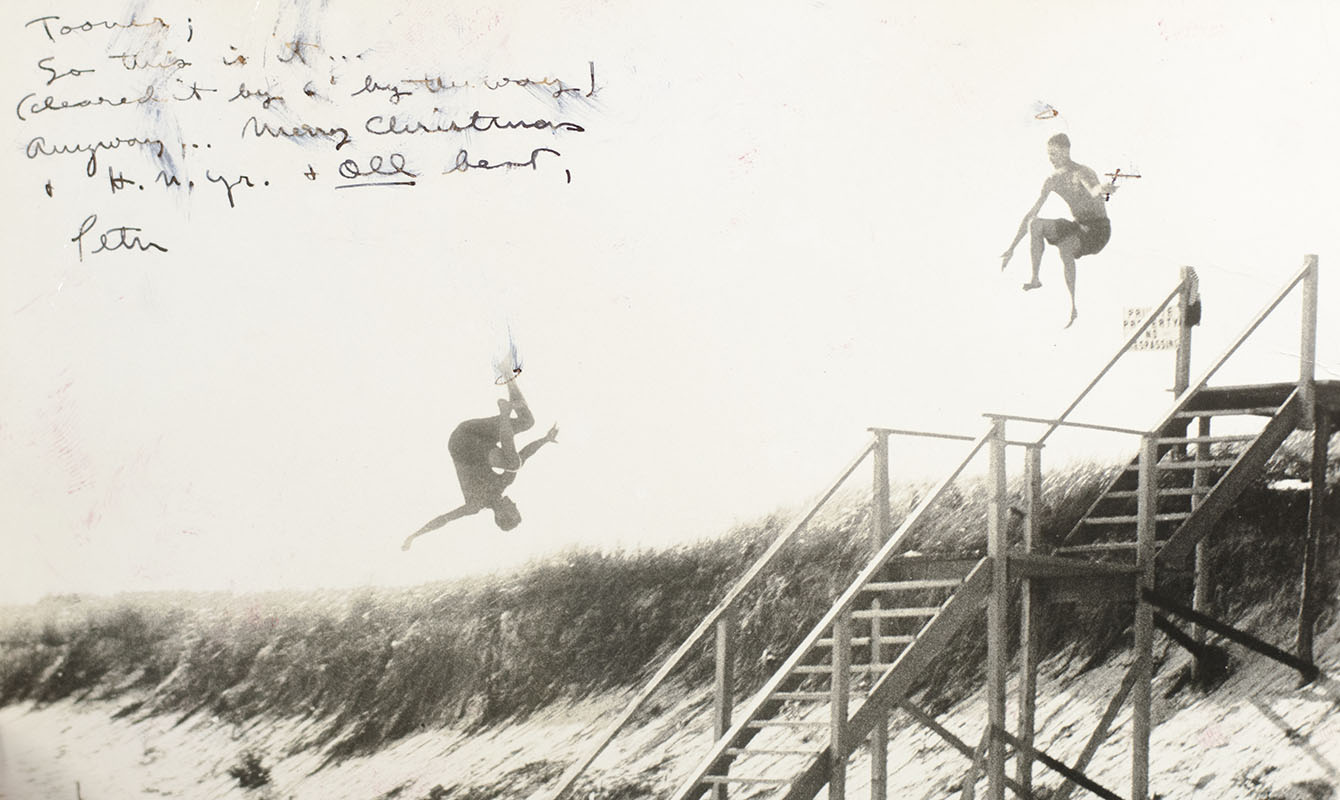 Tooner;
So this is it...
(cleared it by a "by the way)
Anyway... Merry Christmas
+ H.N.Yr. + All best,
Peter
PRIVATE
PROPERTY
NO
TRESPASSING